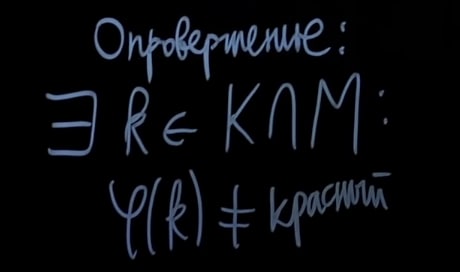 Опровержение:
∃ k ∈ K ∩ M:
φ(k) ≠ красный